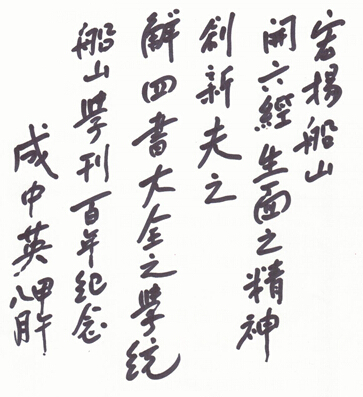 宏揚船山
開六經生面之精神
創新夫之
解四書大全之學統
船山學刊百年紀念
成中英